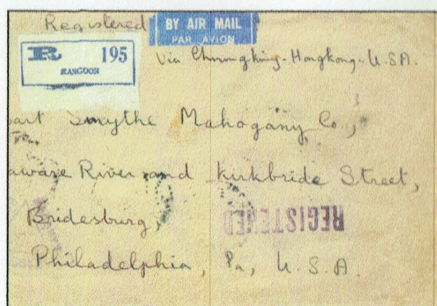 Registered
BY AIR MAIL
PAR AVION
R 195
RANGOON
Via Chungking-Hongkong-U.S.A.
art Smythe Mahogany Co.,
aware River and Kirkbride Street,
Bridesburg,
REGISTERED
Philadelphia, Pa, U.S.A.